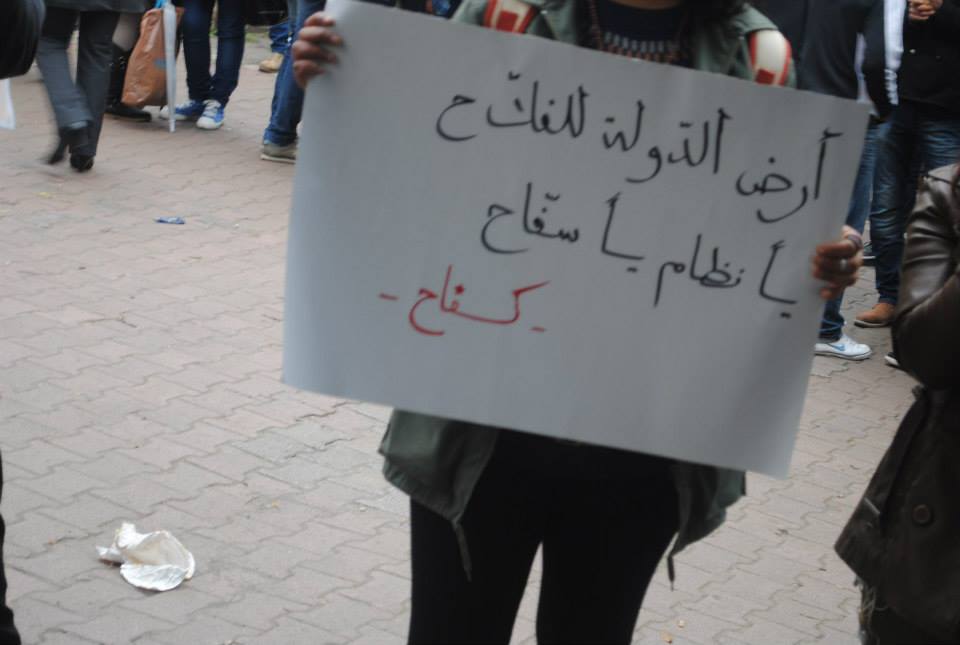 أرض الدّولة للفلّاح
يا نظام يا سفّاح
- كفاح -